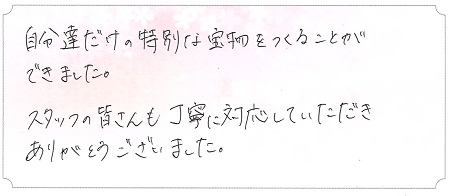 自分達だけの特別な宝物をつくることが
できました。
スタッフの皆さんも丁寧に対応していただき
ありがとうございました。